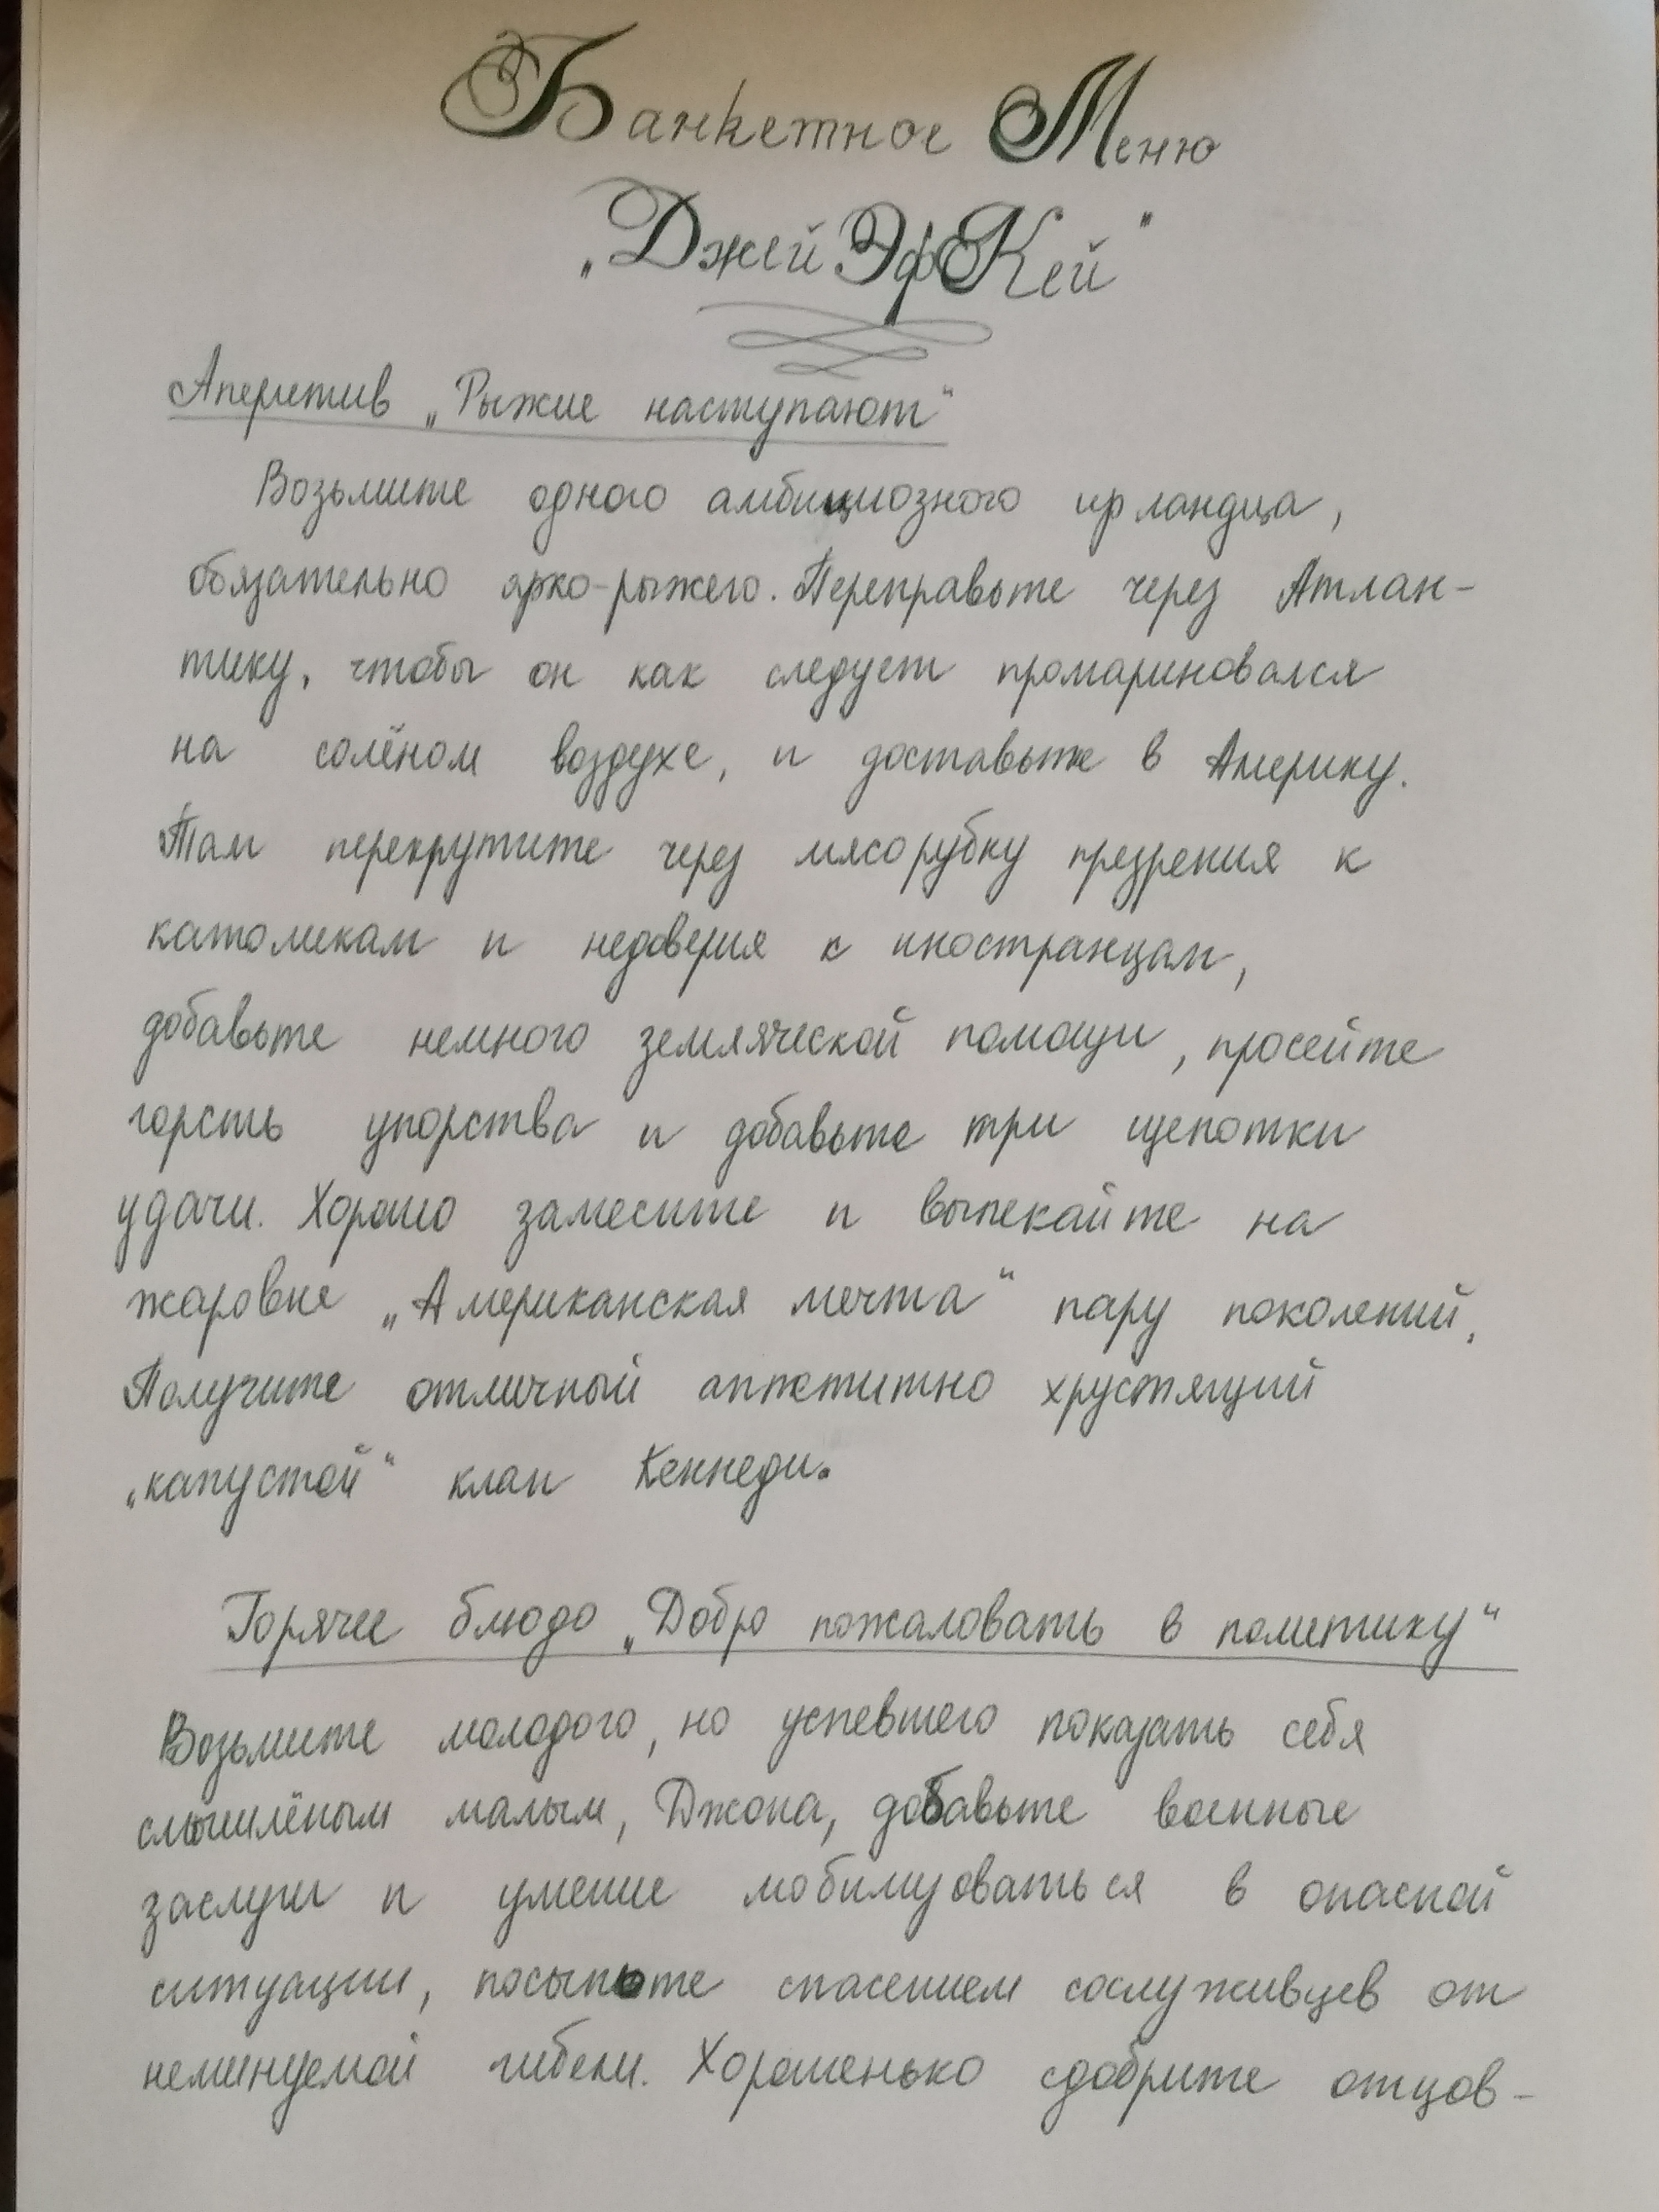 Банкетное Меню
„Джей Эф Кей"
Аперетив „Рыжие наступают"
Возьмите одного амбициозного ирландца,
обязательно ярко-рыжего. Переправьте через Атлан-
тику, чтобы он как следует промариновался
на солёном воздухе, и доставьте в Америку.
Там перекрутите через мясорубку презрения к
католикам и недоверия к иностранцам,
добавьте немного земляческой помощи, просейте
горсть упорства и добавьте три щепотки
удачи. Хорошо замесите и выпекайте на
жаровне „Американская мечта" пару поколений.
Получите отличный аппетитно хрустящий
„капустой" клан Кеннеди.
Горячее блюдо „Добро пожаловать в политику"
Возьмите молодого, но успевшего показать себя
смышлёным малым, Джона, добавьте военные
заслуги и умение мобилизоваться в опасной
ситуации, посыпьте спасением сослуживцев от
неминуемой гибели. Хорошенько сдобрите отцов-